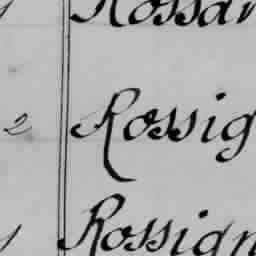 Rossar
2 Rossig
Rossign